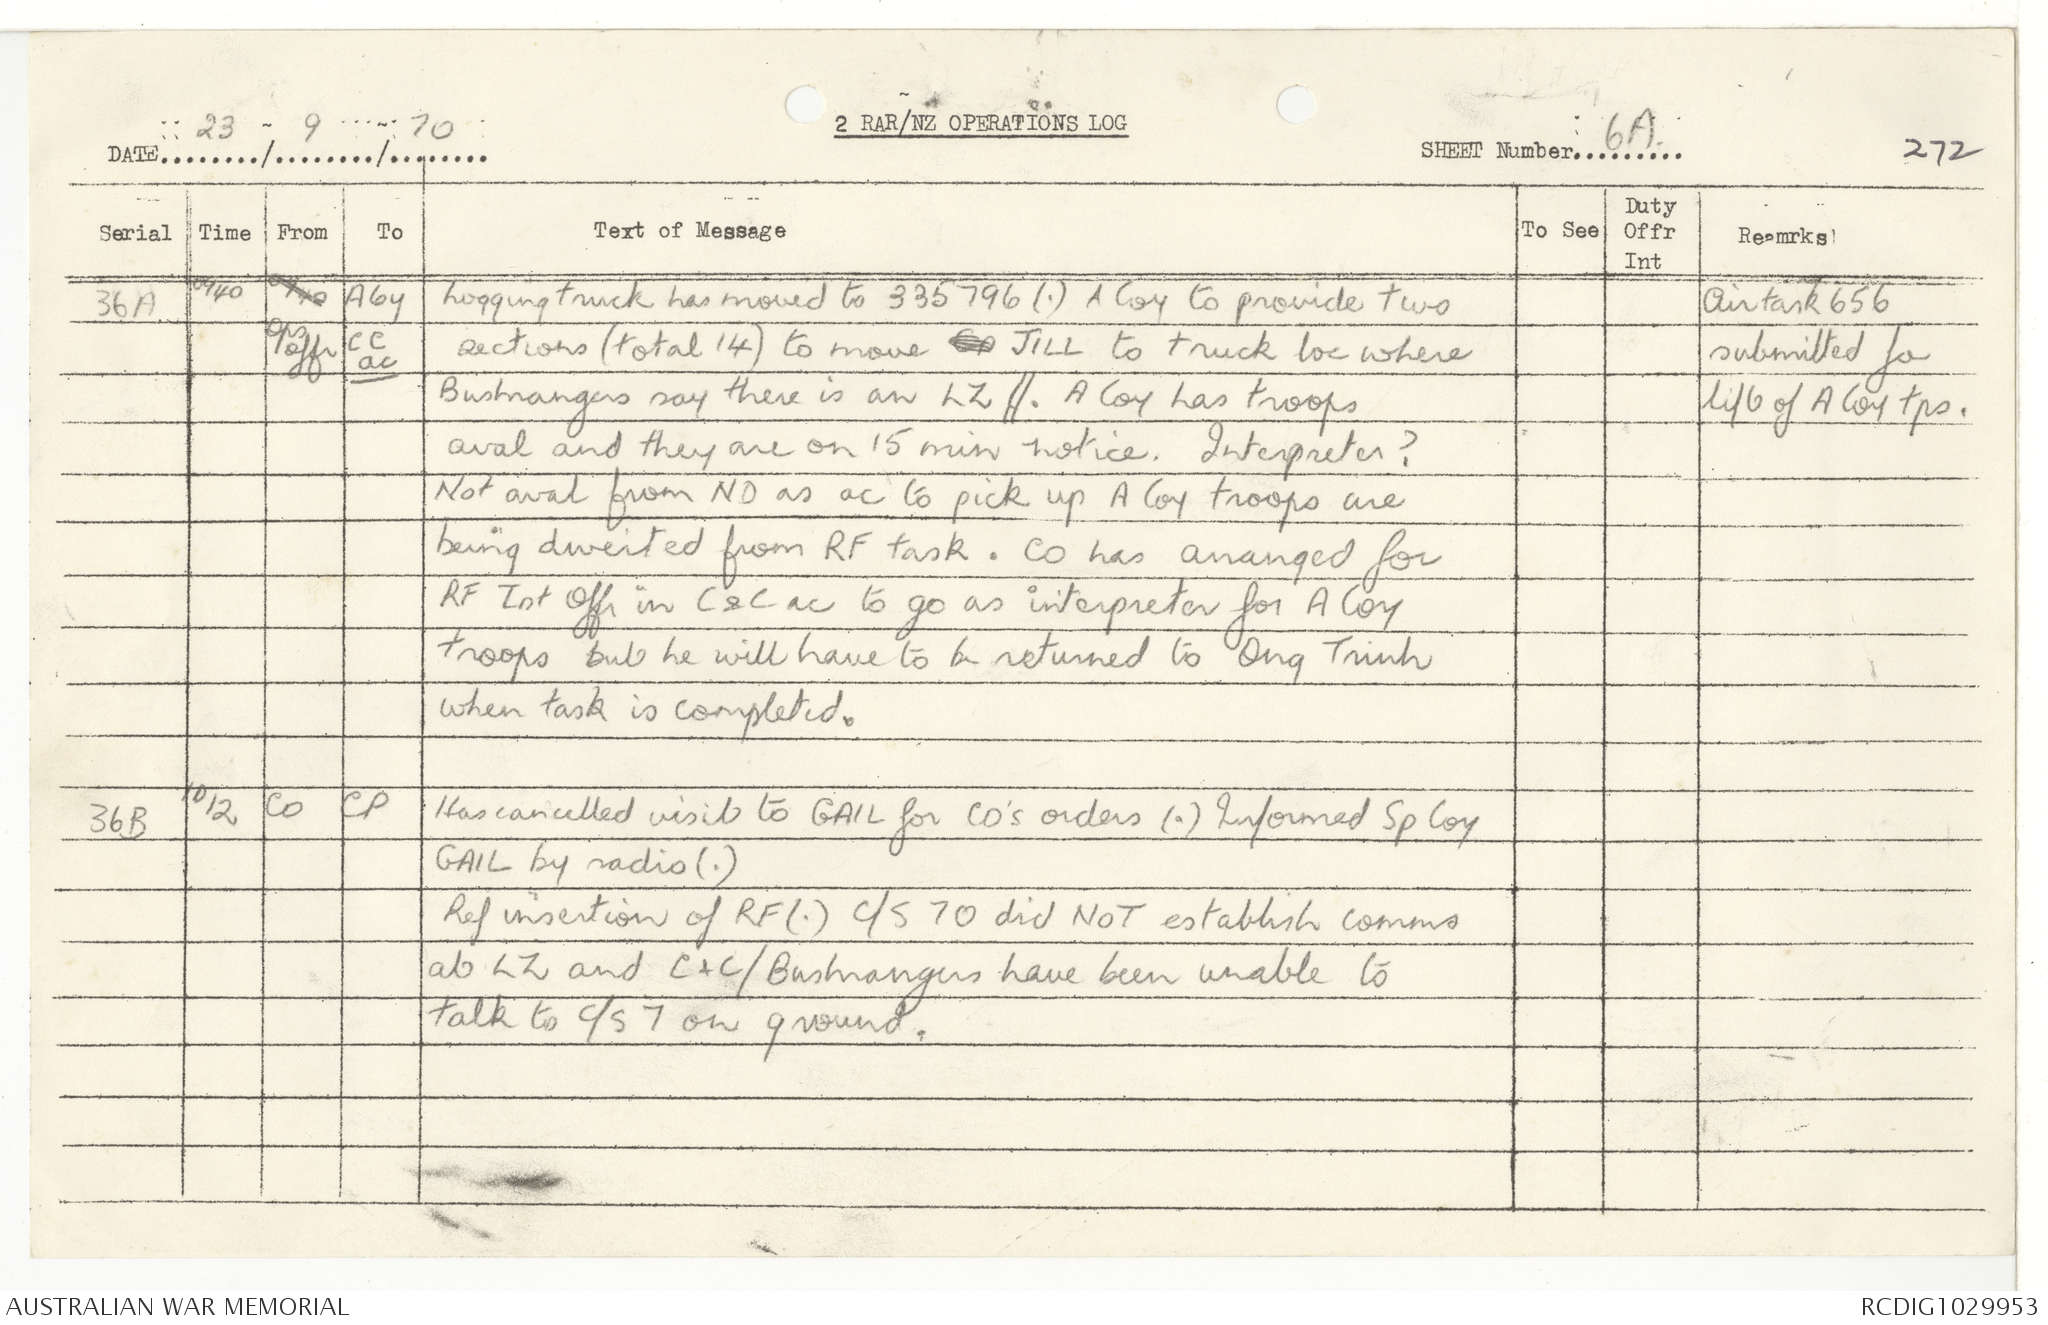 2 RAR/NZ OPERATIONS LOG
DATE 23/9/70
SHEET Number 6A
272
Serial Time From To Text of Message To See Duty Offr Int Reamrks
36A 0940 A Coy Logging truck has moved to 335796 (.) A Coy to provide two Airtask 656
Ops offr CC ac sections (total 14) to move JILL to truck loc where submitted for
Bushrangers say there is an LZ //. A Coy has troops lift of A Coy tps.
aval and they are on 15 min notice. Interpreter?
Not aval from ND as ac to pick up A Coy troops are
being diverted from RF task. CO has arranged for
RF Int Offr in C&C ac to go as interpreter for A Coy
troops but he will have to be returned to Ong Trinh
when task is completed.
36B 1012 CO CP Has cancelled visit to GAIL for CO's orders (.) Informed Sp Coy
GAIL by radio (.)
Ref insertion of RF (.) C/S 70 did NOT establish comms
at LZ and C+C/Bushrangers have been unable to
talk to C/S 7 on ground.
AUSTRALIAN WAR MEMORIAL
RCDIG1029953